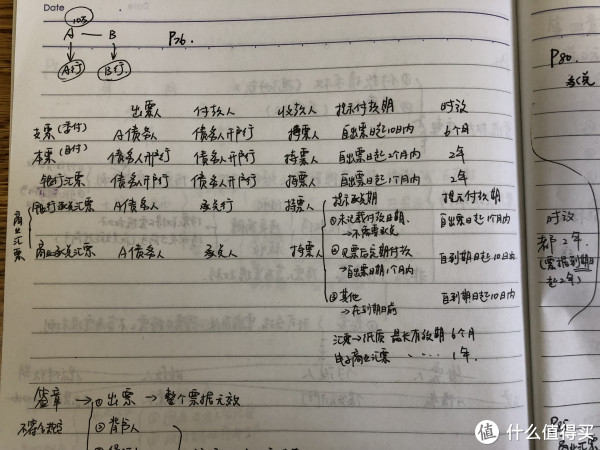 Date
10万
A — B P76.
A行 B行
出票人 付款人 收款人 提示付款期 时效
支票(委付) A债务人 债务人开户行 持票人 自出票日起10日内 6个月
本票(自付) 债务人开户行 债务人开户行 持票人 自出票日起2个月内 2年
银行汇票 债务人开户行 债务人开户行 持票人 自出票日起1个月内 2年
商业汇票
银行承兑汇票 A债务人 承兑行 持票人 提示承兑期 提示付款期
①未记载付款日期, 自出票日起1个月内
→不需要承兑
商业承兑汇票 A债务人 承兑人 持票人 ②见票后定期付款 自到期日起10日内
→自出票日期1个月内
③其他 自到期日起10日内
→在到期日前
汇票→纸质 最长有效期 6个月
电子商业汇票 1年.
签章 → ①出票 → 整个票据无效
不符合规定 ②背书人
P80.
承兑
时效
都2年.
(票据到期日
起2年)
商业汇票
值 什么值得买